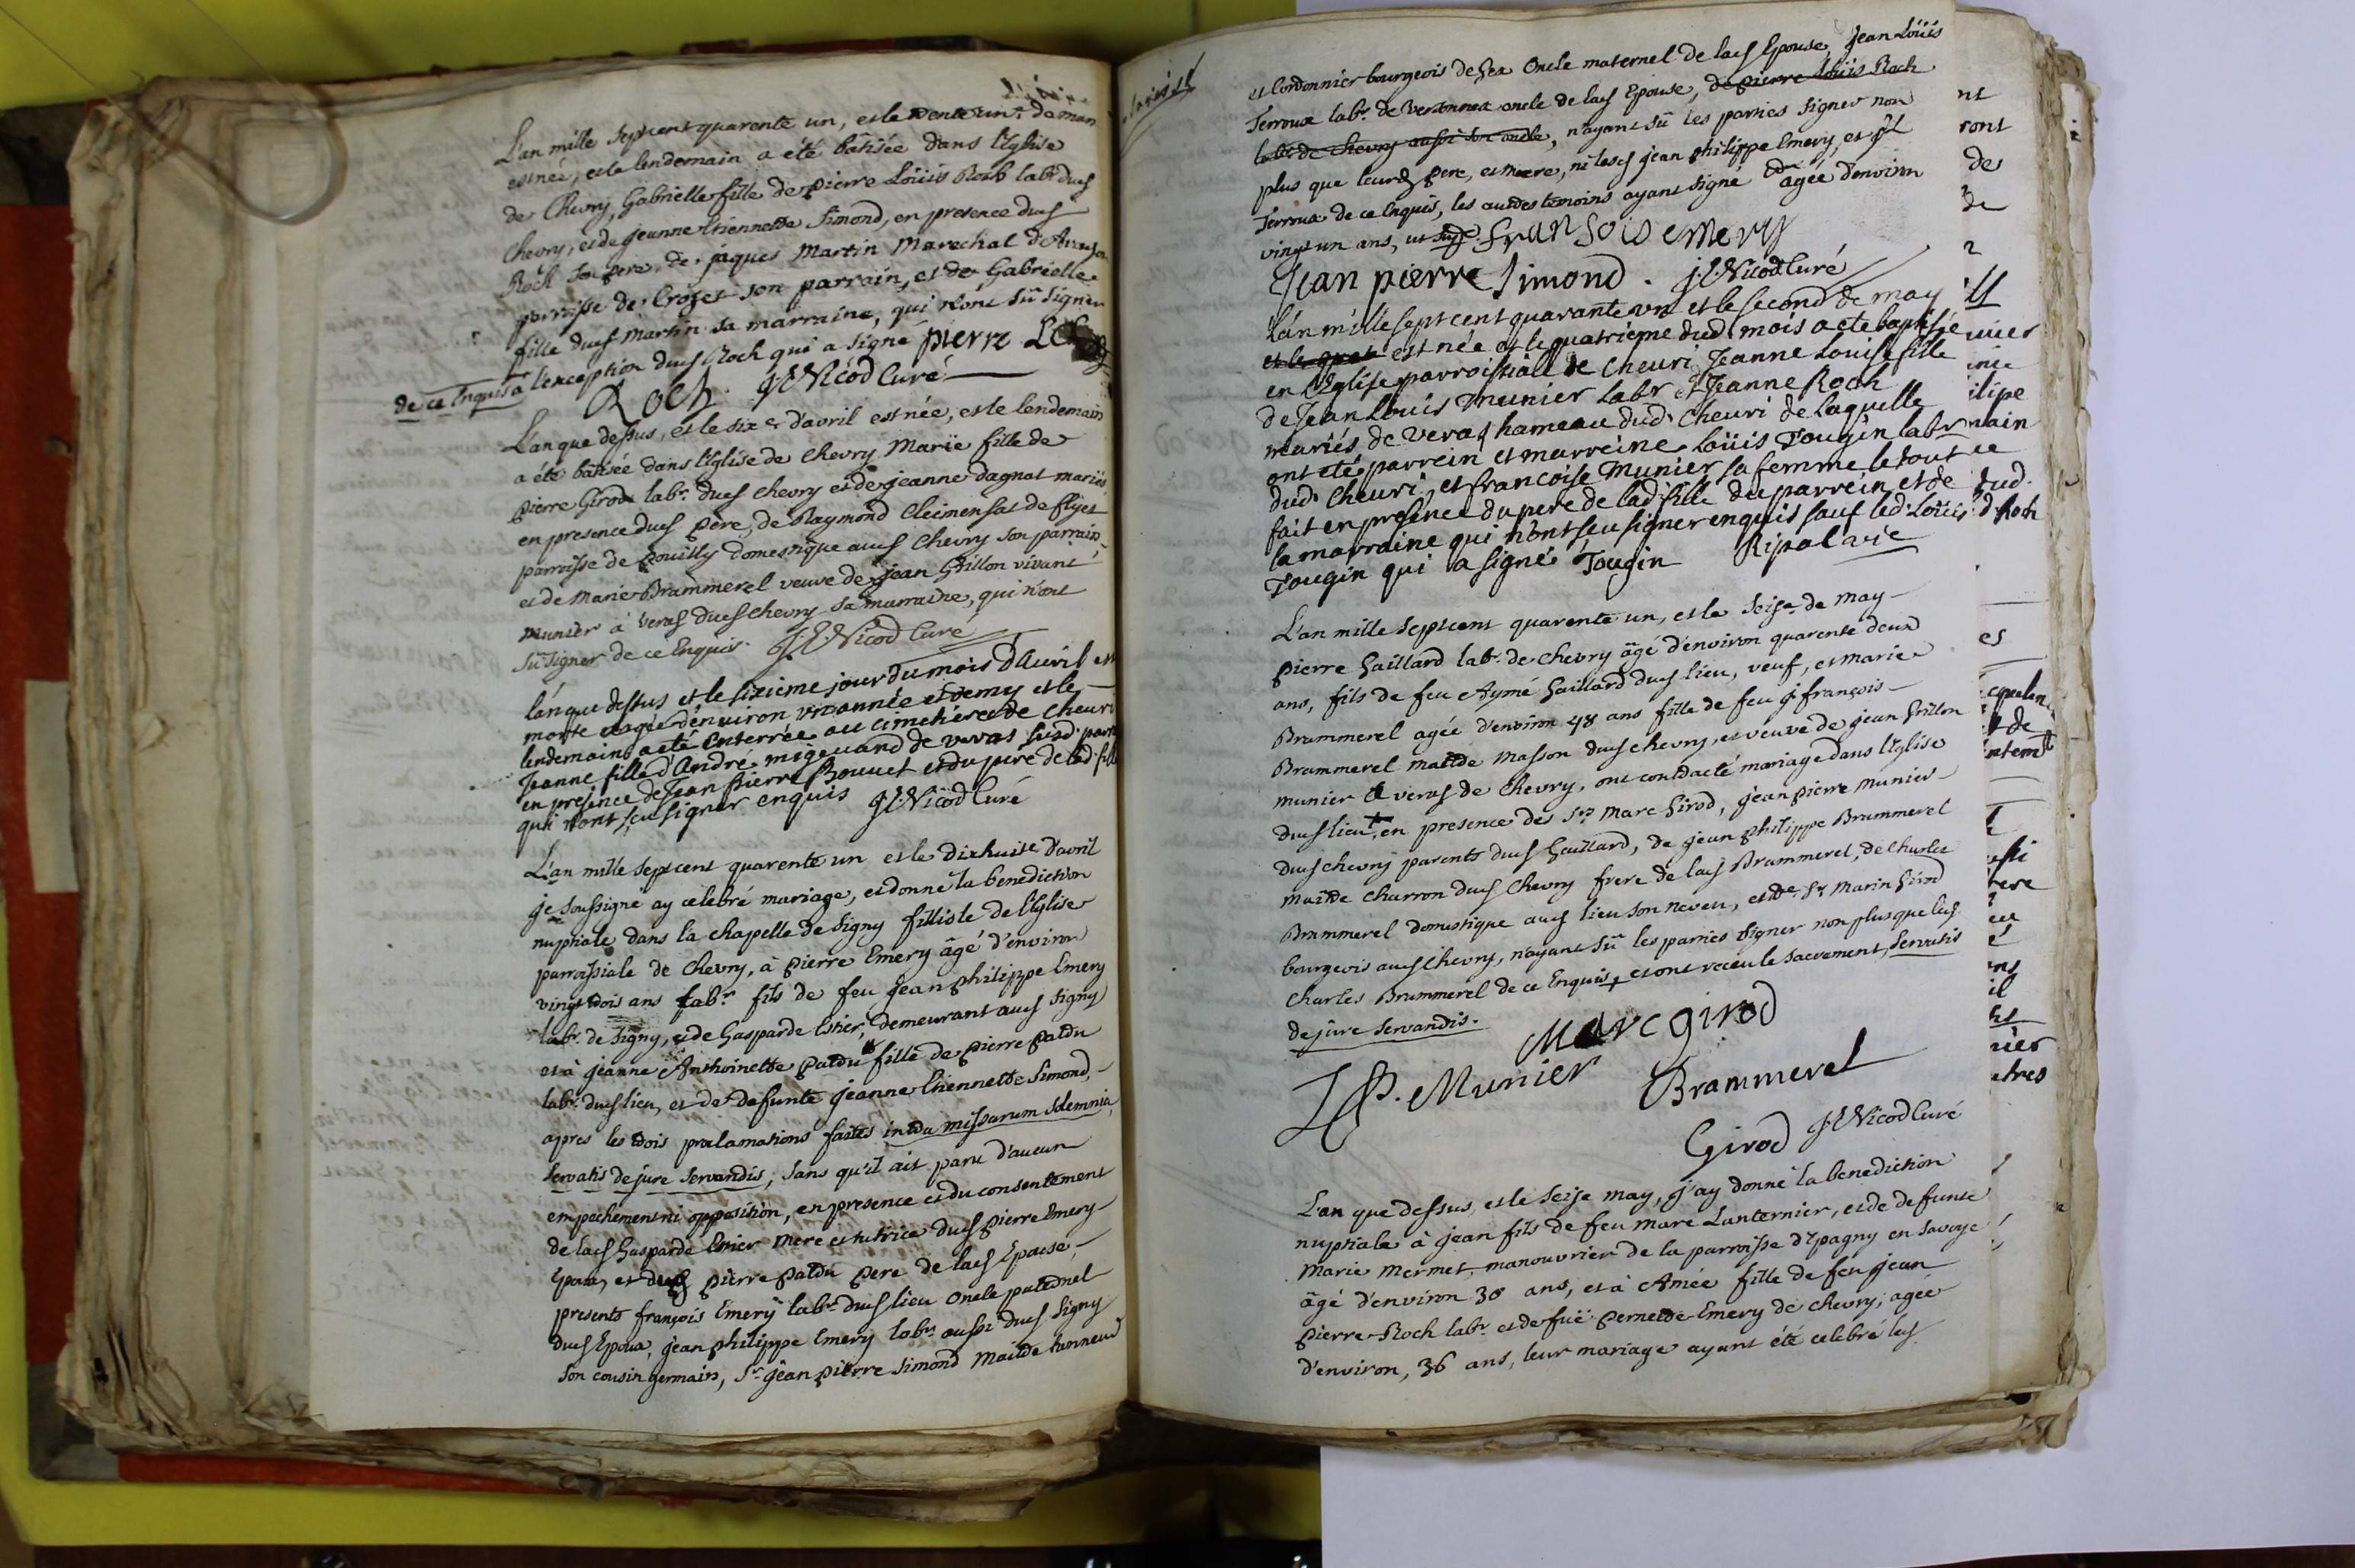 L'an mille sept cent quarente un, et le trente un.e de mars
est née, et le lendemain a été bâtisée dans l'Eglise
de Chevry, Gabrielle fille de Pierre Loüis Roch lab.r dud
Chevry, et de Jeanne Etiennette Simond, en presence dud
Roch son pere, de jaques Martin Marechal
parroisse de Crozet son parrain, et de Gabrielle
fille dud Martin sa marraine, qui n'ont sû signer
de ce Enquis a l'exception dud Roch qui a signé pierre
Roch. J.E. Nicod Curé
L'an que dessus, et le six e d'avril est née, et le lendemain
a été bâtisée dans l'Eglise de Chevry Marïe fille de
Pierre Girod lab.r dud Chevry et de jeanne dagnat mariés
en presence dud Père, de Raymond Cleimensat de flyet
parroisse de Pouilly domestique aud Chevry son parrain,
et de Marie Brammerel veuve de Jean Grillon vivant
munier à Veras dud Chevry sa marraine, qui n'ont
sû signer de ce Enquis. J.E. Nicod Curé
lán que dessus et le sixième jour du mois d'Auril est
morte aagée d'enuiron vn année et demy et le
lendemain a eté enterrée au cimetiére de Cheuri
Jeanne fille d'André migeuand de veras susd. parr
en presence de Jean Pierre Bouuet et du pere de lad. fille
qui n'ont sçu signer enquis J.E. Nicod Curé
L'an mille sept cent quarente un et le dixhuit e d'avril
je soussigné ay célebré mariage, et donné la benediction
nuptiale dans la chapelle de Signy fillisle de l'Eglise
parroissiale de Chevry, à Pierre Emery âgé d'environ
vingt trois ans lab.r fils de feu Jean Philippe Emery
lab.r de Signy, et de Gasparde Estier, demeurant aud Signy
et à Jeanne Anthoinette Patru fille de Pierre Patru
lab.r dud lieu, et de defunte Jeanne Etiennette Simond,
apres les trois proclamations faites intra missarum solemnia,
servatis de jure servandis, sans qu'il ait paru d'aucun
empechement ni opposition, en presence et du consentement
de lad Gasparde Estier mere et tutrice dud Pierre Emery
Epoux, et dud Pierre Patru Pere de lad Epouse,
presents françois Emery lab.r dud lieu oncle paternel
dud Epoux, Jean Philippe Emery lab.r aussi dud Signy
son cousin germain, S.r Jean Pierre Simond Maitre tanneur
et Cordonnier bourgeois de Gex Oncle maternel de lad Epouse, Jean Loüis
Terroux lab.r de Veronnex oncle de lad Epouse, de Pierre Loüis Roch
lab.r de Chevry aussi son oncle, n'ayant sû les parties signer non
plus que leurs Pere, et mere, ni lesd Jean Philippe Emery, et
Terroux de ce Enquis, les autres temoins ayant signé âgée d'environ
vingt un ans, fransois emery
Jean pierre Simond. J.E. Nicod Curé
L'án mille sept cent quarante vn et le second de may
et le quat est née et le quatrieme dud. mois a eté baptisée
en l'Eglise parroissiale de Cheuri, Jeanne Louise fille
de Jean Louis Munier Labr et Jeanne Roch
mariés de Veraq hameau dud. Cheuri de laquelle
ont eté parrein et marreine Loüis Tougin labr
dud. Cheuri, et francoise Munier sa femme, le tout
fait en presence du pere de lad. fille du parrein et de
la marraine qui n'ont sçu signer enquis sauf led. Loüis
Tougin qui a signé Tougin Ripol
L'an mille sept cent quarente un, et le seise de may
Pierre Gaillard lab.r de Chevry âgé d'environ quarente deux
ans, fils de feu Aymé Gaillard dud lieu, veuf, et Marie
Brammerel agée d'environ 48 ans fille de feu françois
Brammerel maitre Masson dud Chevry, et veuve de Jean Grillon
Munier à Veras de Chevry, ont contracté mariage dans l'Eglise
dud lieu, en presence des S.rs Marc Girod, Jean Pierre Munier
dud Chevry parents dud Gaillard, de Jean Philippe Brammerel
maitre Charron dud Chevry frere de lad Brammerel, de Charles
Brammerel domestique aud lieu son neveu, et de S.r Marin Girod
bourgeois aud Chevry, n'ayant sû les parties signer non plus que led
Charles Brammerel de ce Enquis, et ont receu le sacrement, servatis
de jure servandis.
Marc girod
J P. Munier
Brammerel
Girod J.E. Nicod Curé
L'an que dessus, et le seise may, j'ay donné la benediction
nuptiale à Jean fils de feu Marc Lanternier, et de defunte
Marie Mermet, manouvrier de la parroisse d'Epagny en Savoye
âgé d'environ 30 ans, et à Amée fille de feu Jean
Pierre Roch lab.r et de fuë Pernette Emery de Chevry, agée
d'environ, 36 ans, leur mariage ayant été celebré led